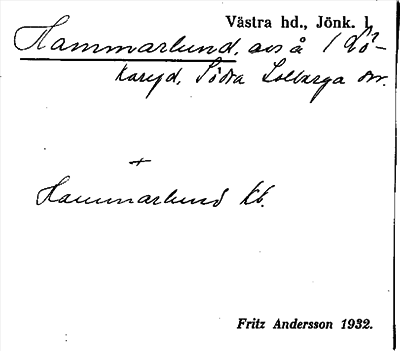 Västra hd., Jönk. l.
Hammarlund, avs å 1 Bo-
karyd, Södra Solberga sn.
+
Hammarlund Kb.
Fritz Andersson 1932.